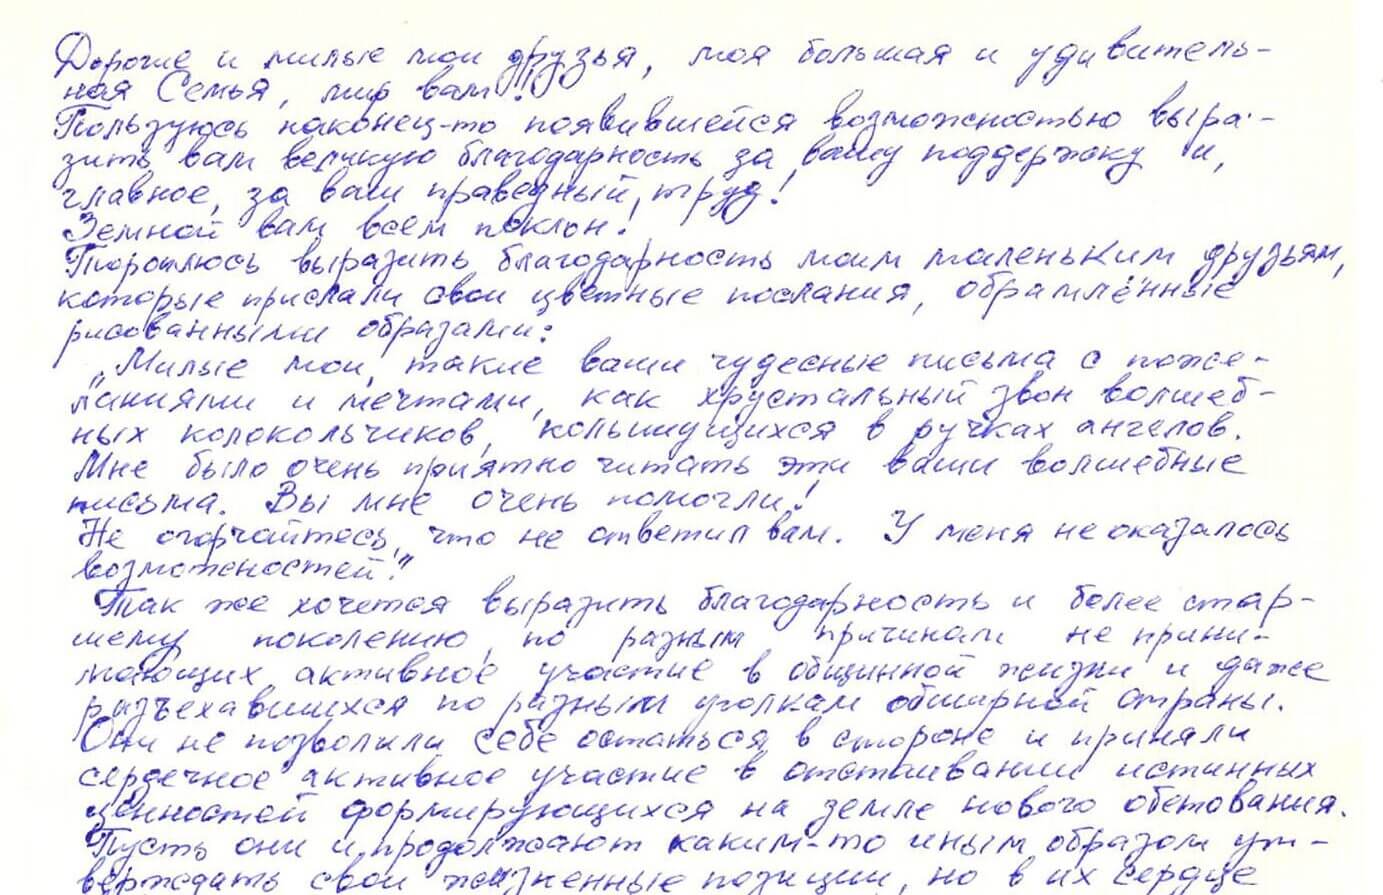 Дорогие и милые мои друзья, моя большая и удивитель-
ная Семья, мир вам!
Пользуюсь наконец-то появившейся возможностью выра-
зить вам великую благодарность за вашу поддержку и,
главное, за ваш праведный труд!
Земной вам всем поклон!
Тороплюсь выразить благодарность моим маленьким друзьям,
которые прислали свои цветные послания, обрамлённые
рисованными образами:
„Милые мои, такие ваши чудесные письма с поже-
ланиями и мечтами, как хрустальный звон волшеб-
ных колокольчиков, колышущихся в ручках ангелов.
Мне было очень приятно читать эти ваши волшебные
письма. Вы мне очень помогли!
Не огорчайтесь, что не ответил вам. У меня не оказалось
возможностей."
Так же хочется выразить благодарность и более стар-
шему поколению, по разным причинам не прини-
мающих активное участие в общинной жизни и даже
разъехавшихся по разным уголкам обширной страны.
Они не позволили себе остаться в стороне и приняли
сердечное активное участие в отстаивании истинных
ценностей формирующихся на земле нового обетования.
Пусть они и продолжают каким-то иным образом ут-
верждать свои жизненные позиции, но в их сердце